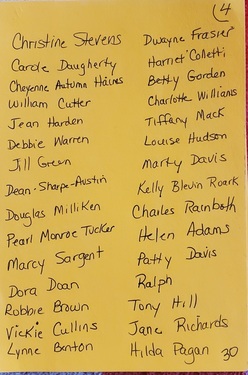 4
Christine Stevens
Carole Daugherty
Cheyenne Autumn Haines
William Cutter
Jean Harden
Debbie Warren
Jill Green
Dean-Sharpe-Austin
Douglas Milliken
Pearl Monroe Tucker
Marcy Sargent
Dora Doan
Robbie Brown
Vickie Cullins
Lynne Benton
Dwayne Frasier
Harriet Colletti
Betty Gorden
Charlotte Williams
Tiffany Mack
Louise Hudson
Marty Davis
Kelly Blevin Roark
Charles Rainboth
Helen Adams
Patty Davis
Ralph
Tony Hill
Jane Richards
Hilda Pagan 30